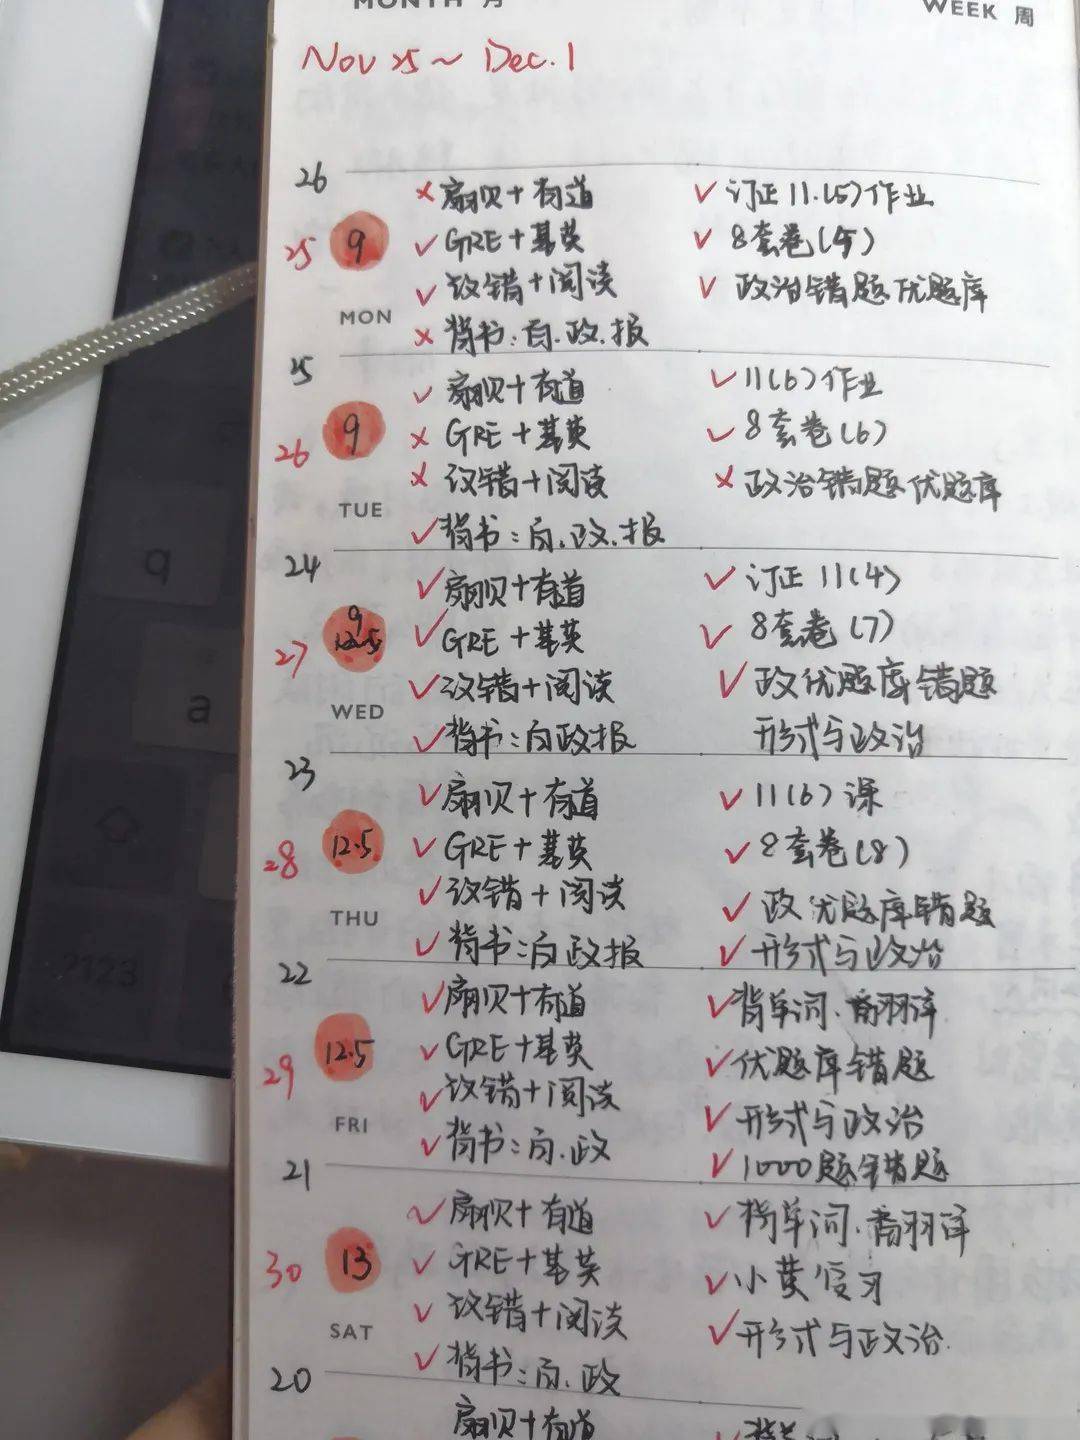 MONTH 月
WEEK 周
Nov 25 ~ Dec. 1
26
× 扇贝+有道
✓ 订正 11.(5)作业
25
9
✓ GRE+基英
✓ 8套卷(5)
✓ 政错+阅读
✓ 政治错题优题库
MON
× 背书:白.政.报
25
✓ 扇贝+有道
✓ 11(6)作业
26
9
× GRE+基英
✓ 8套卷(6)
× 政错+阅读
× 政治错题优题库
TUE
✓ 背书:白.政.报
24
✓ 扇贝+有道
✓ 订正 11(4)
27
9
12.5
✓ GRE+基英
✓ 8套卷(7)
✓ 政错+阅读
✓ 政优题库错题
WED
✓ 背书:白政报
形式与政治
23
✓ 扇贝+有道
✓ 11(6)课
28
12.5
✓ GRE+基英
✓ 8套卷(8)
✓ 政错+阅读
✓ 政优题库错题
THU
✓ 背书:白政报
✓ 形式与政治
22
✓ 扇贝+有道
✓ 背单词.看翻译
29
12.5
✓ GRE+基英
✓ 优题库错题
✓ 政错+阅读
✓ 形式与政治
FRI
✓ 背书:白.政
✓ 1000题错题
21
✓ 扇贝+有道
✓ 背单词.看翻译
30
13
✓ GRE+基英
✓ 小黄复习
✓ 政错+阅读
✓ 形式与政治.
SAT
✓ 背书:白.政
20
扇贝+有道
q
a
?123